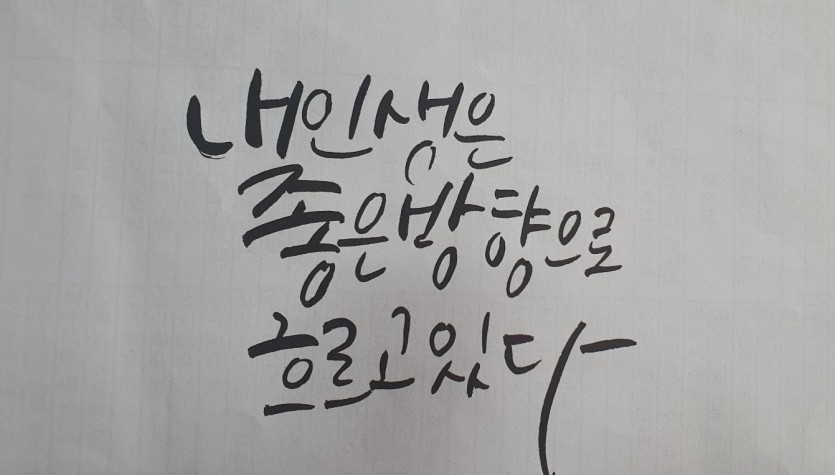 내 인생은
좋은 방향으로
흐르고 있다